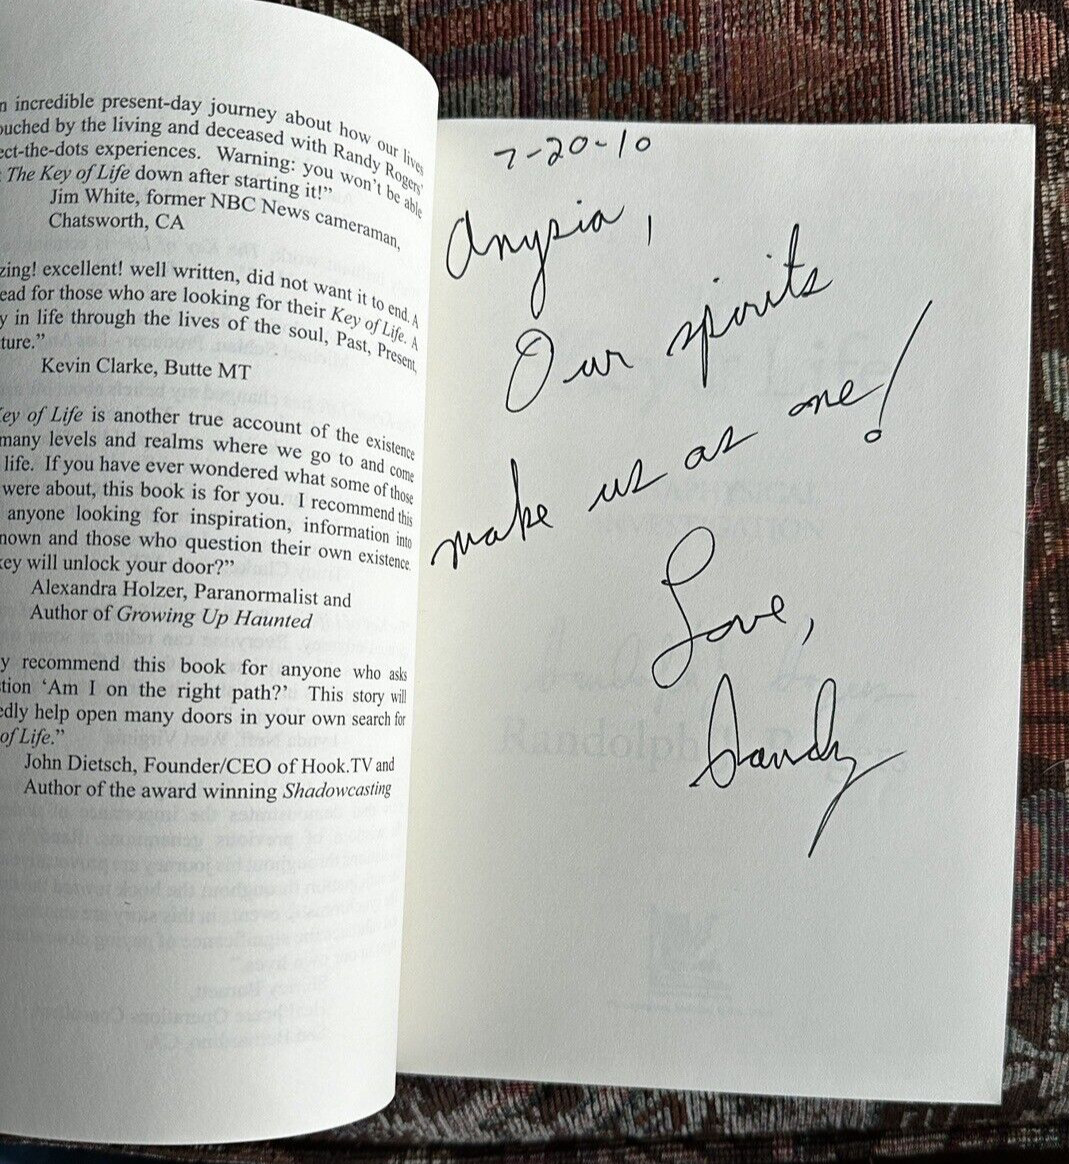 incredible present-day journey about how our lives
by the living and deceased with Randy Rogers'
experiences. Warning: you won't be able
The Key of Life down after starting it!"
Jim White, former NBC News cameraman,
Chatsworth, CA
excellent! well written, did not want it to end. A
for those who are looking for their Key of Life. A
in life through the lives of the soul, Past, Present,
Kevin Clarke, Butte MT
of Life is another true account of the existence
many levels and realms where we go to and come
life. If you have ever wondered what some of those
were about, this book is for you. I recommend this
anyone looking for inspiration, information into
and those who question their own existence.
key will unlock your door?"
Alexandra Holzer, Paranormalist and
Author of Growing Up Haunted
recommend this book for anyone who asks
'Am I on the right path?' This story will
help open many doors in your own search for
of Life."
John Dietsch, Founder/CEO of Hook.TV and
Author of the award winning Shadowcasting
7-20-10
Anysia,
Our spirits
make us as one!
Love,
Randy